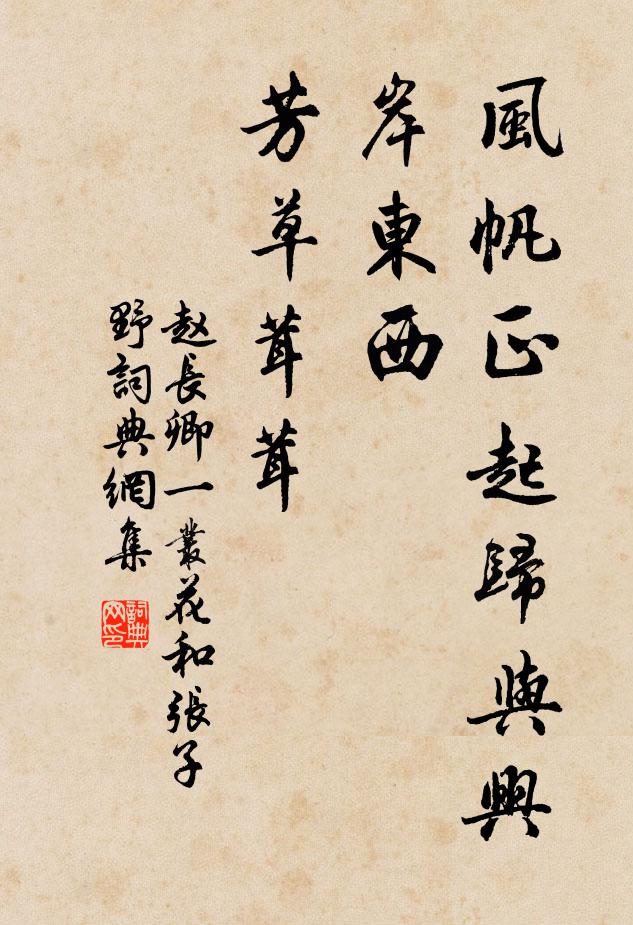 風帆正起歸與興
岸東西
芳草茸茸
赵長卿一叢花和張子
野詞典網集
詞典
网印